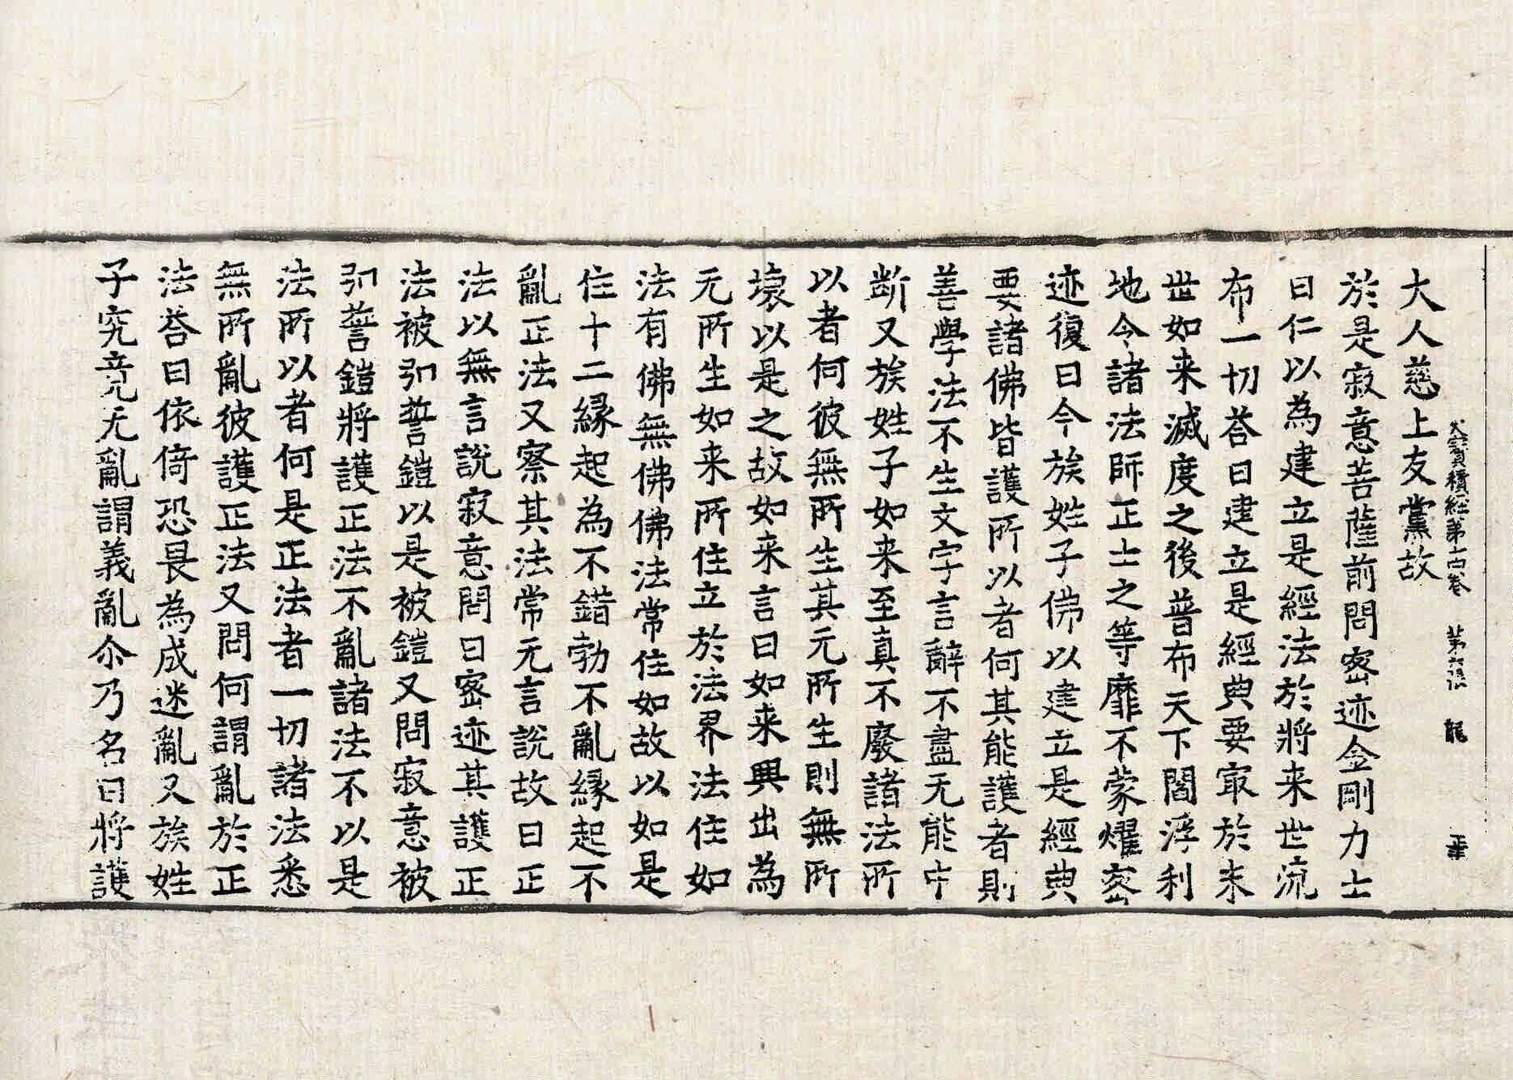 大寶積經第十四卷 第六張 龍
大人慈上友黨故
於是寂意菩薩前問密迹金剛力士
曰仁以為建立是經法於將来世流
布一切荅曰建立是經典要㝡於末
世如来滅度之後普布天下閻浮利
地令諸法師正士之等靡不蒙燿密
迹復曰今族姓子佛以建立是經典
要諸佛皆護所以者何其能護者則
善學法不生文字言辭不盡无能中
断又族姓子如来至真不廢諸法所
以者何彼無所生其无所生則無所
壞以是之故如来言曰如来興出為
无所生如来所住立於法界法住如
法有佛無佛佛法常住如故以如是
住十二緣起為不錯勃不亂緣起不
亂正法又察其法常无言說故曰正
法以無言說寂意問曰密迹其護正
法被弘誓鎧以是被鎧又問寂意被
弘誓鎧將護正法不亂諸法不以是
法所以者何是正法者一切諸法悉
無所亂彼護正法又問何謂亂於正
法荅曰依倚恐畏為成迷亂又族姓
子究竟无亂謂義亂尒乃名曰將護